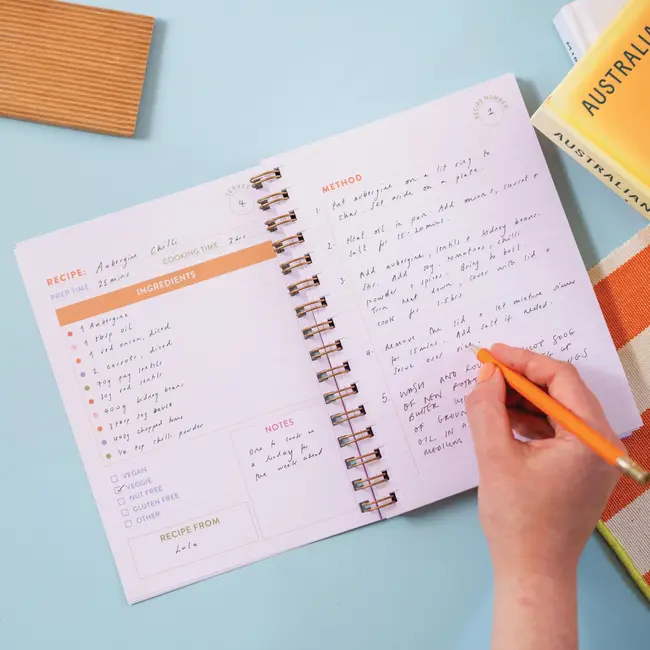 SERVES
4
RECIPE: Aubergine Chilli
PREP TIME 25 mins COOKING TIME 2 hrs
INGREDIENTS
1 Aubergine
1 tbsp oil
1 red onion, diced
2 carrots, diced
70g puy lentils
30g red lentils
400g kidney beans
3 tbsp soy sauce
400g chopped toms
1/4 tsp chilli powder
VEGAN
VEGGIE
NUT FREE
GLUTEN FREE
OTHER
RECIPE FROM
Lula
NOTES
One to cook on
a Sunday for
the week ahead
RECIPE NUMBER
1
METHOD
1. Put aubergine on a lit ring to
char. Set aside on a plate.
2. Heat oil in pan. Add onions, carrot +
salt for 15-20mins.
3. Add aubergine, lentils + kidney beans.
Stir. Add soy, tomatoes, chilli
powder + spices. Bring to boil.
Turn heat down, cover with lid +
cook for 1.5hrs
4. Remove the lid + let mixture simmer
for 15mins. Add salt if needed.
Serve over
5. WASH AND 500G
OF NEW
BUTTER
OF
OIL IN A
MEDIUM
AUSTRALIA
AUSTRALIAN